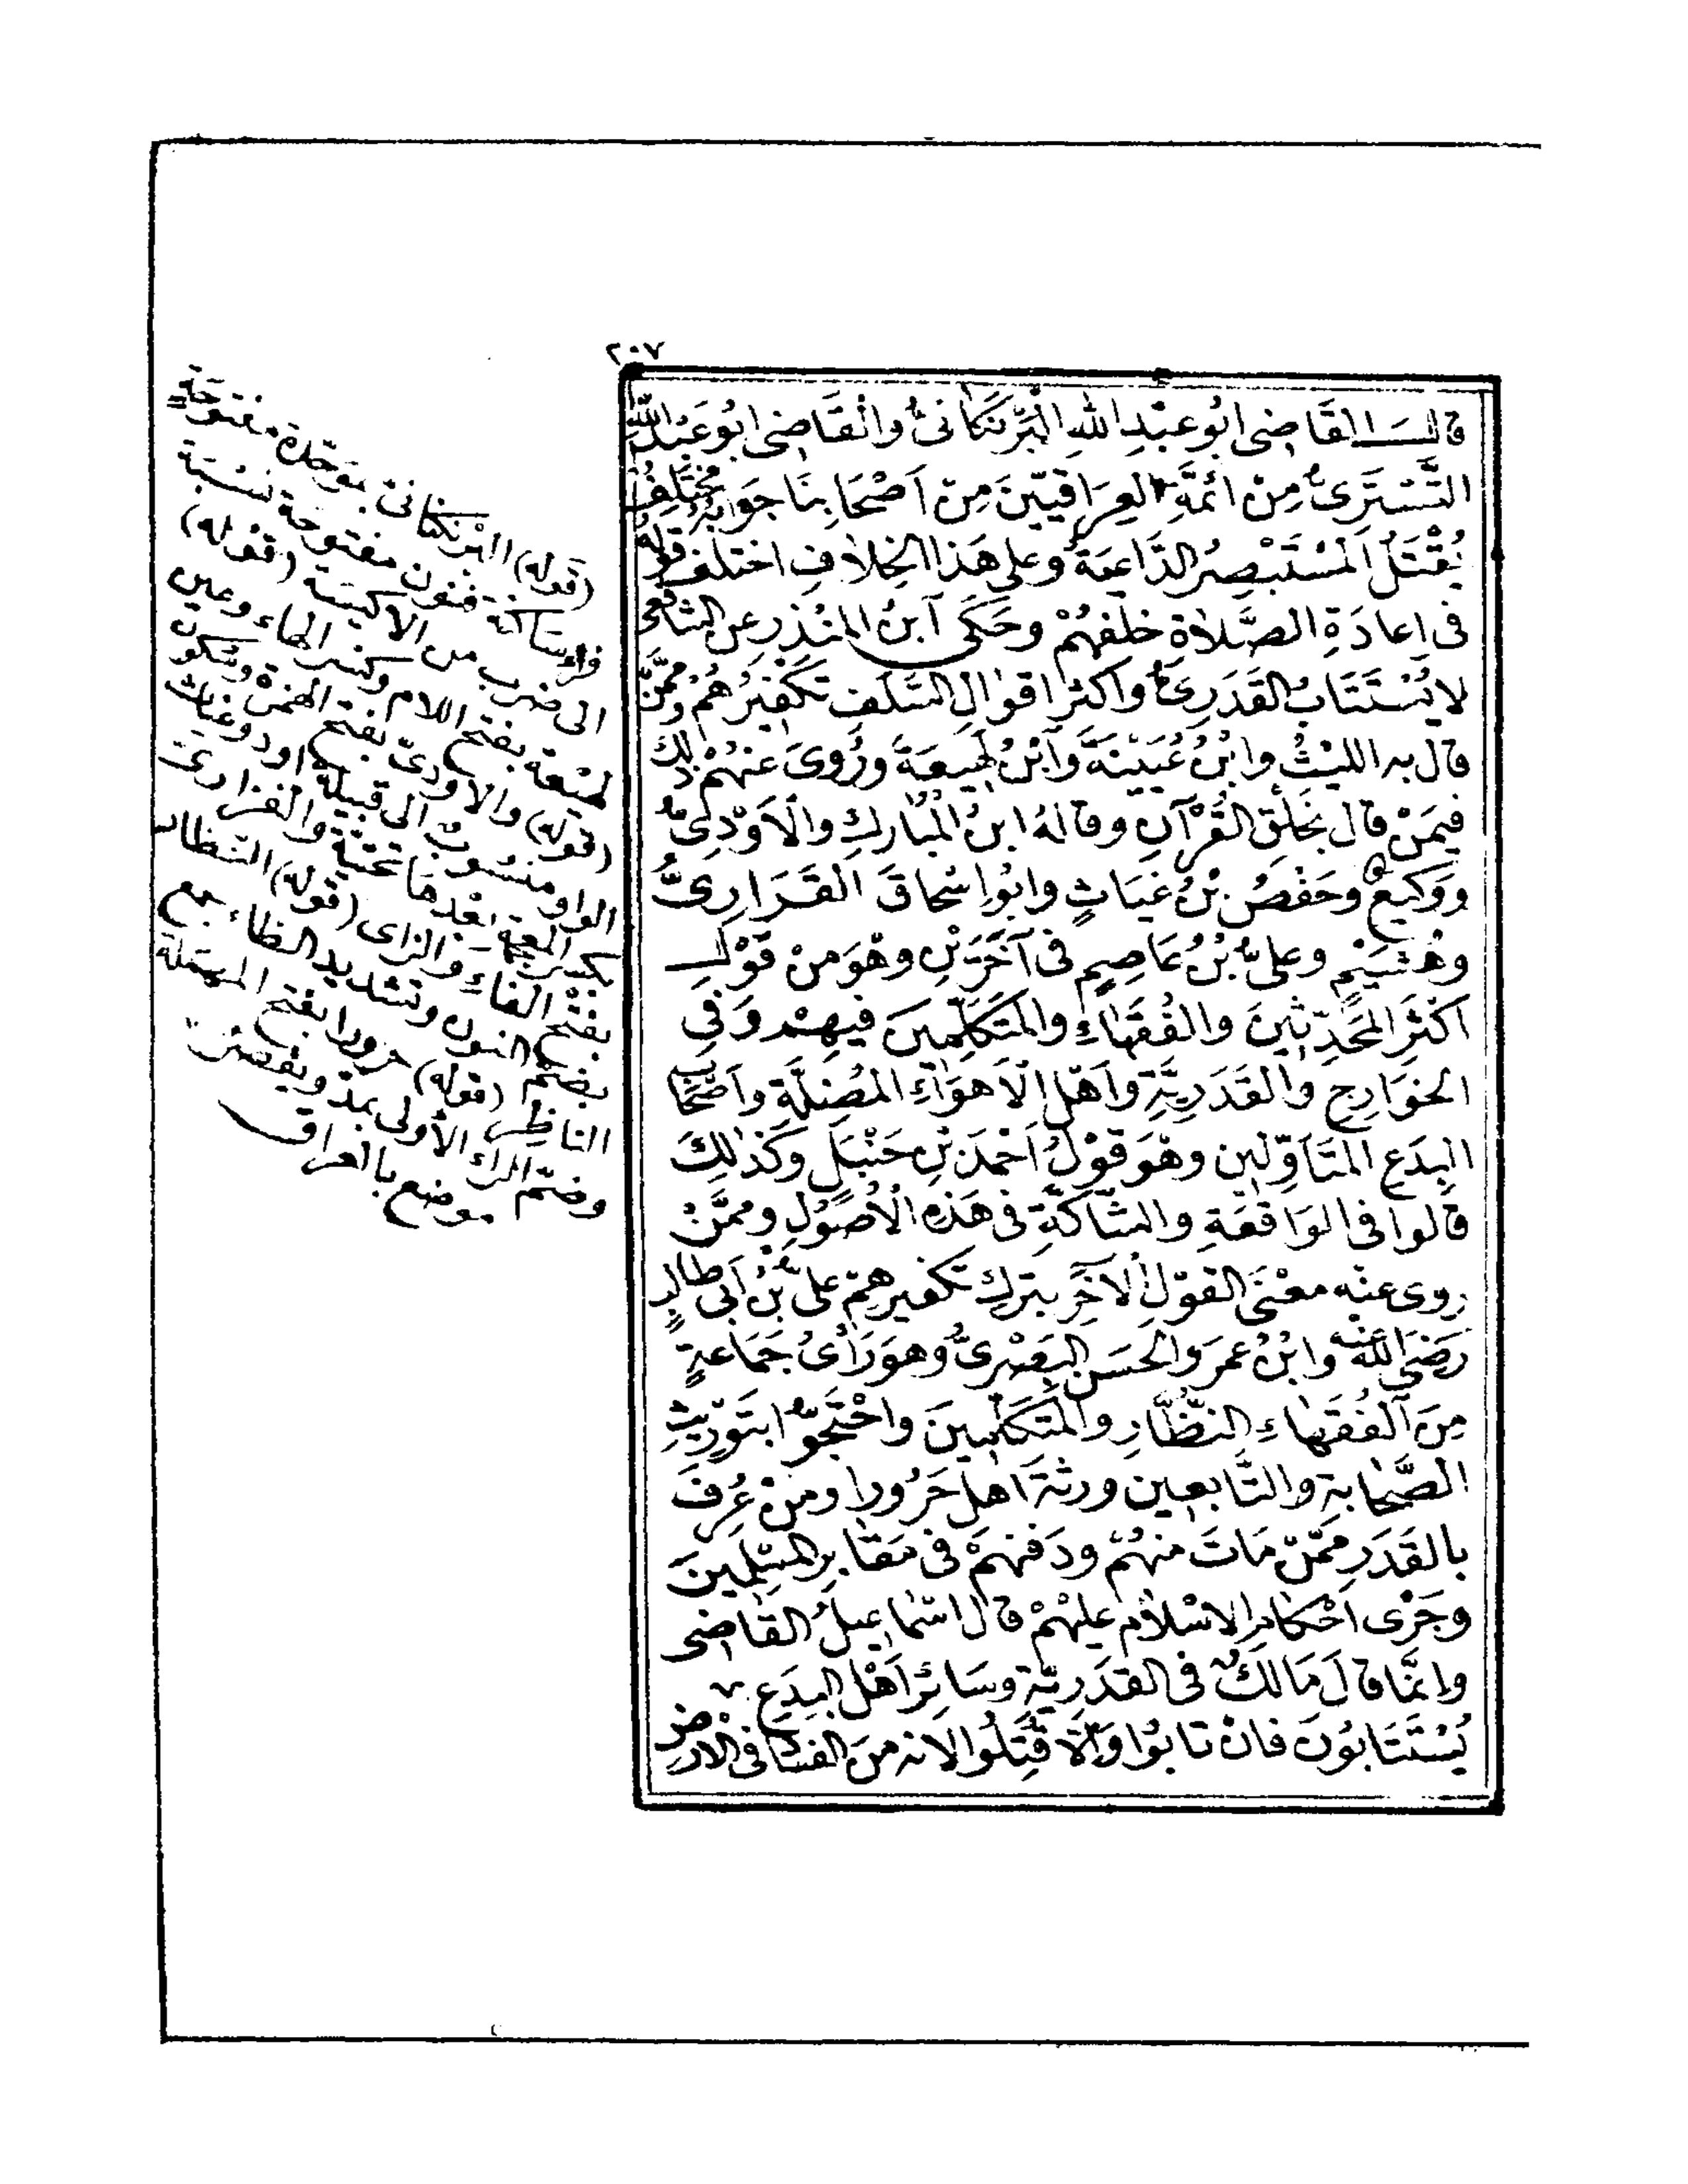 ٢٠٧
قال القَاضِى ابُو عَبْدِ اللهِ الْبَرْنَكَانىُّ والْقَاضِى ابُو عَبْدِ اللهِ
التُّسْتَرِىُّ مِنْ ائمَّةِ العِرَاقِيّينَ مِنْ اَصْحَابِنَا جَوَابُهُ مُخْتَلِفٌ
يُقْتَلُ الْمُسْتَبْصِرُ الدَّاعِيَةُ وعلى هَذا الخِلافِ اختلف قولُهُ
فى اِعادَةِ الصَّلاة خلفهُمْ وحَكَى ابنُ المنْذِر عن الشافعى
لا يُسْتَتَابُ القَدَرِىُّ واكثرُ اقوالِ السَّلَفِ تكْفيرُهُمْ ومِمَّنْ
قال به الليْثُ وابْنُ عُيَيْنَةَ وَابْنُ لَهِيعَةَ ورُوِىَ عَنهُمْ ذلك
فيمَنْ قال بخَلْقِ القُرْآنِ وقالهُ ابنُ المُبَارَكِ والْاَوْدِىُّ
ووَكيعٌ وحَفْصُ بْنُ غِيَاثٍ وابُو اسْحاقَ الفَزَارِىُّ
وهُشَيْمٍ وعلىُّ بْنُ عَاصِمٍ فى آخَرِيْنِ وهْوَ مِنْ قَوْلِ
اكثَرِ المحَدِّثينَ والفُقَهَاءِ والمتكَلِّمِينَ فيهِمْ وَفى
الخوَارِجِ والقَدَرِيَّةِ واَهْلِ الْاَهْوَاءِ المُضِلَّةِ واَصْحَابِ
البِدَعِ المتَأَوِّلين وهْوَ قَوْلُ اَحْمَدَ بْنِ حَنْبَلٍ وكَذلكَ
قالوا فى الوَاقفَةِ والشَّاكَّةِ فى هَذِهِ الْاُصُولِ ومِمَّنْ
رُوِى عنْه معْنَى القَوْلِ الْآخَرِ بترك تكفيرهِمْ علىُّ بْنُ اَبى طالبٍ
رَضِىَ اللهُ عَنْه وابْنُ عُمرَ والحسَن البَصْرِىُّ وهوَ رَأْىُ جَمَاعةٍ
مِنَ الفُقَهَاءِ النُّظَّارِ والمُتَكَلِّمينَ واحْتَجُّوا بتَوْرِيثِ
الصَّحَابة والتَّابعين ورثةَ اَهل حَرُورا ومنْ عُرِفَ
بالقَدَرِ مِمَّنْ مَاتَ منهُمْ ودَفنِهِمْ فى مَقَابِرِ المسْلِمِينَ
وجَرْى اَحْكام الاسْلام عليْهِمْ قال اسْمَاعِيلُ القَاضِى
وانمَّا قالَ مَالكٌ فى القدَرِيَّةِ وسَائِرِ اَهْلِ البِدَعِ
يُسْتَتَابُونَ فانْ تابُوا وَاِلَّا قُتِلُوا لانه منَ الفسَادِ فى الارض
(قوله) البَرْنكانىّ بموَحّدة مفتوحَةٍ
فراء ساكنة فنون مفتوحة نسْبَة
الى ضرب من الاكيسة (قوله)
لهيْعَة بفتح اللام وكسْر الهاء وعين
(قوله) والاوْدىّ بفتح الهمزة وسُكون
الواو منسوبٌ الى قبيلة اود وغياث
بكسر المعجمة بعْدهَا تحتيَّة والفزارىّ
بفتح الفاء والزاى (قوله) النظار
بضمّ النون وتشديد الظاء جمع
الناظر (قوله) حرورا بفتح المهملة
وضمّ الراء الأولى يمدّ ويقصر
موضع بالعراق